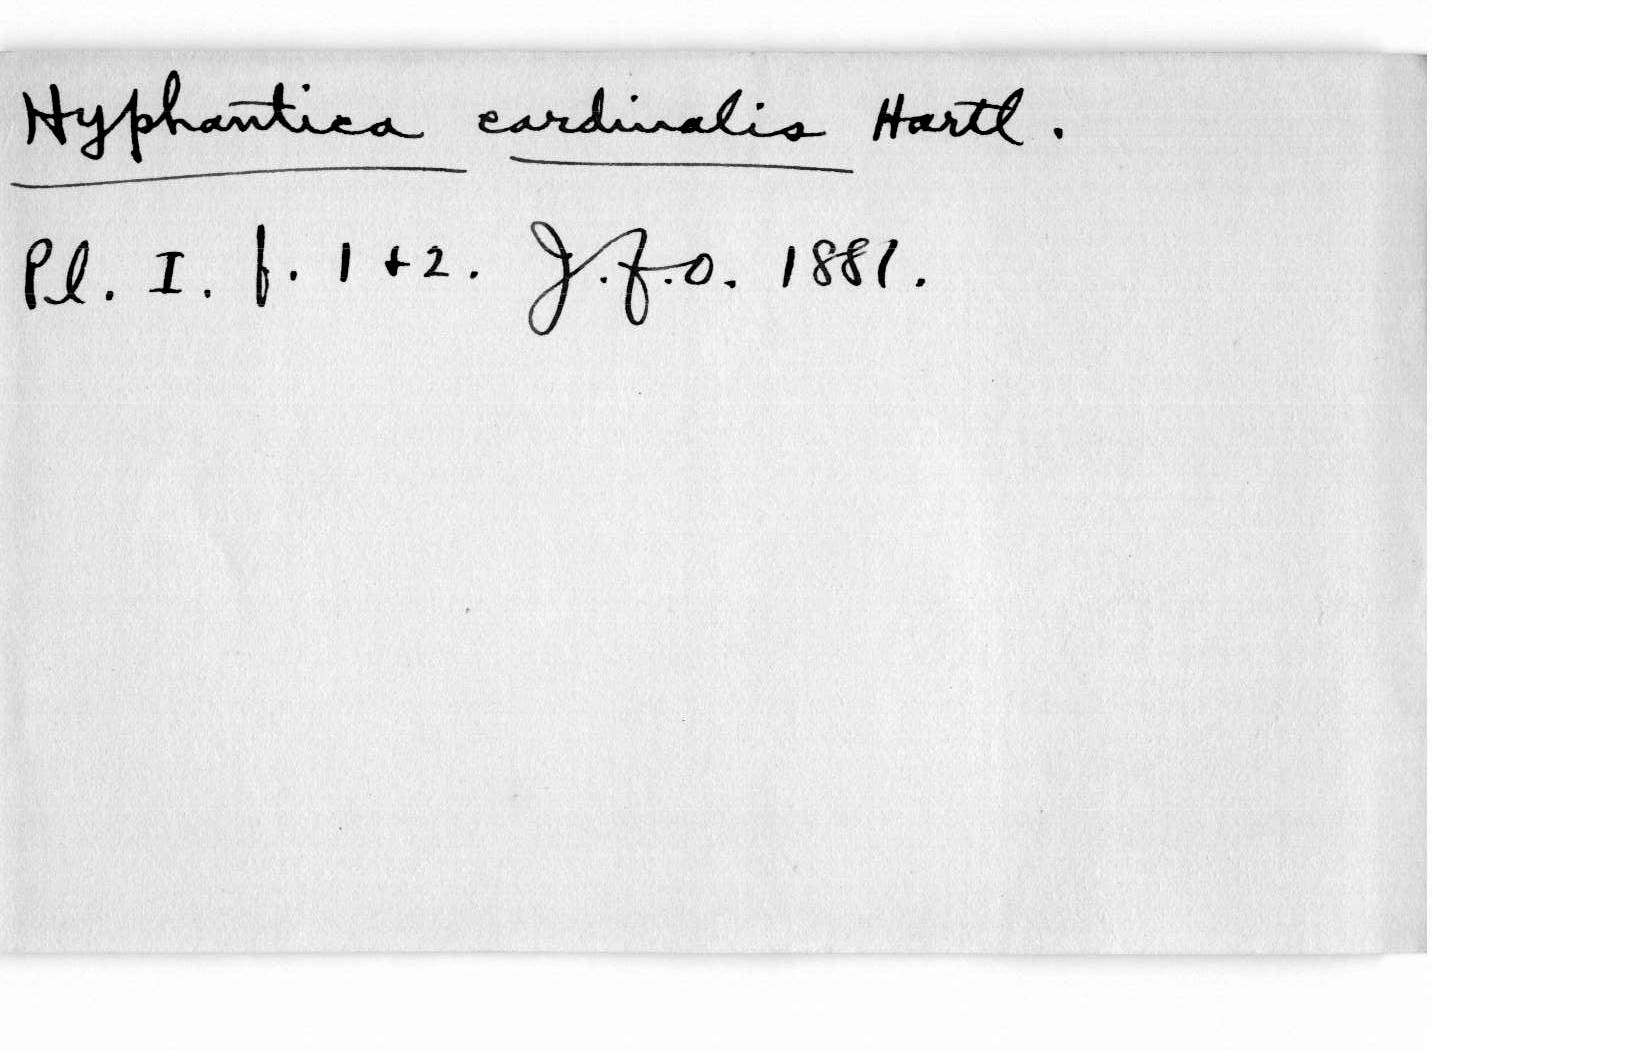 Hyphantica cardinalis Hartl.
Pl. I. f. 1 + 2. J.f.O. 1881.